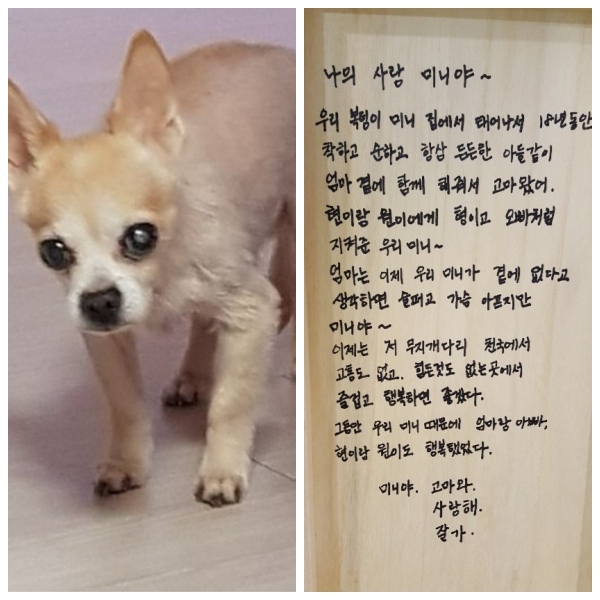 나의 사랑 미니야~
우리 복덩이 미니 집에서 태어나서 18년동안
착하고 순하고 항상 든든한 아들같이
엄마 곁에 함께 해줘서 고마왔어.
현이랑 원이에게 형이고 오빠처럼
지켜준 우리 미니~
엄마는 이제 우리 미니가 곁에 없다고
생각하면 슬퍼고 가슴 아프지만
미니야~
이제는 저 무지개다리 천국에서
고통도 없고. 힘든것도 없는곳에서
즐겁고 행복하면 좋겠다.
그동안 우리 미니 때문에 엄마랑 아빠,
현이랑 원이도 행복했었다.
미니야. 고마와.
사랑해.
잘가.